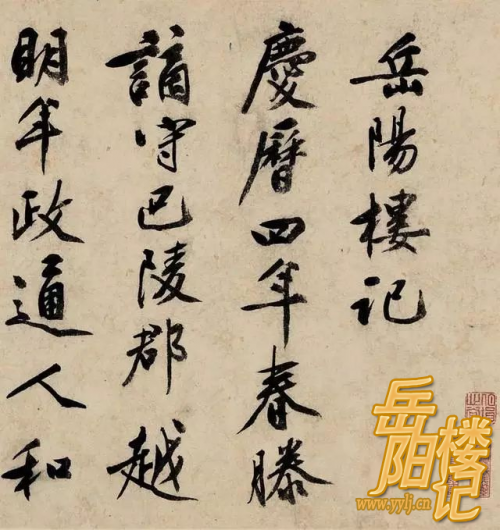 岳陽樓記
慶曆四年春滕
謫守巴陵郡越
明年政通人和
岳阳楼记
www.yylj.cn